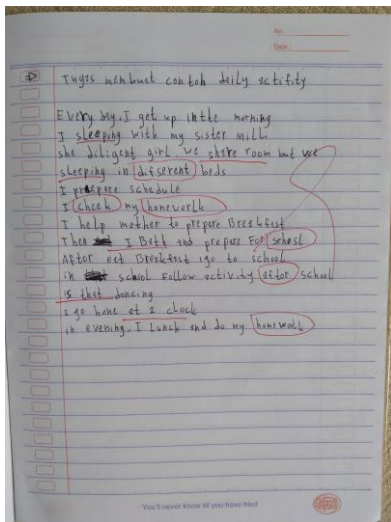 No.
Date :
Tugas membuat contoh daily actifity
Every day, I get up inthe morning
I sleeping with my sister Mill
She diligent girl. we share room but we
sleeping in different beds
I prepare schedule
I cheek my homework
I help mother to prepare Breakfast
Then I Bath and prepare For school
After eat Breakfast igo to school
in school follow activity after school
is that dancing
I go home at 2 clock
in evening, I Lunch and do my homework
You'll never know till you have tried